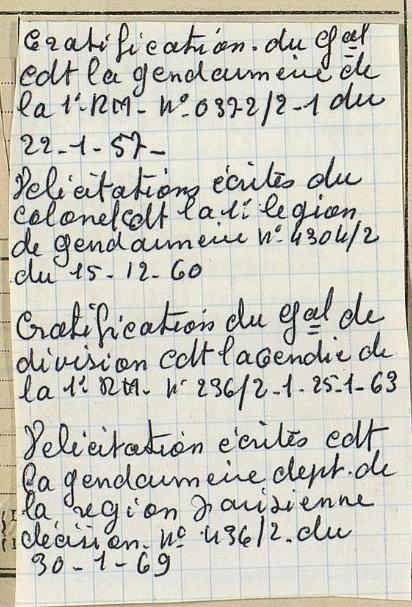 Gratification. du Gal
cdt la gendarmerie de
la 1e RM - N° 0372/2-1 du
22-1-57-
Félicitations écrites du
colonel cdt la 1e legion
de gendarmerie N° 4304/2
du 15-12-60
Gratification du Gal de
division cdt la Gendie de
la 1e RM - N° 236/2-1-25-1-63
Félicitation écrites cdt
la gendarmerie dept. de
la region parisienne
décision. N° 436/2. du
30-1-69